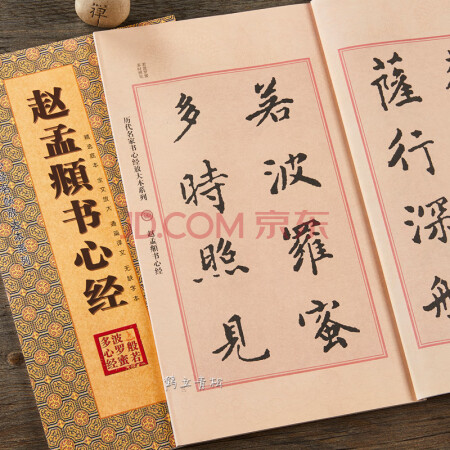 禅
赵孟頫书心经
全文放大 通篇译文 无缺字本
般若
波罗蜜
多心经
历代名家书心经放大本系列
赵孟頫书心经
薩行深般
若波羅蜜
多時照見
JD.COM 京东